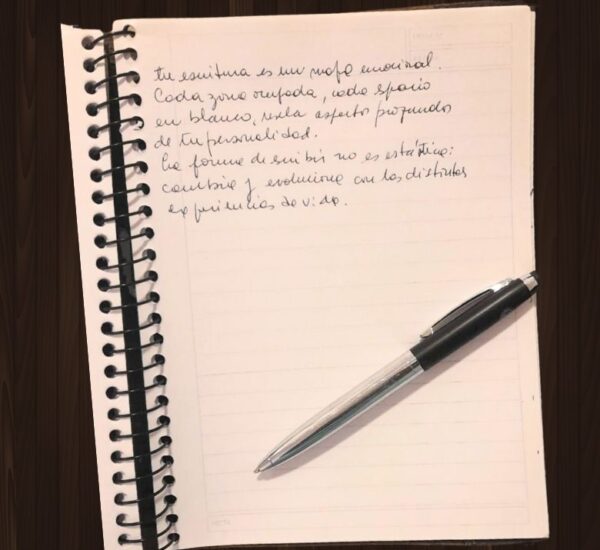 tu escritura es un mapa emocional.
Cada zona ocupada, cada espacio
en blanco, revela aspectos profundos
de tu personalidad.
La forma de escribir no es estática:
cambia y evoluciona con las distintas
experiencias de vida.